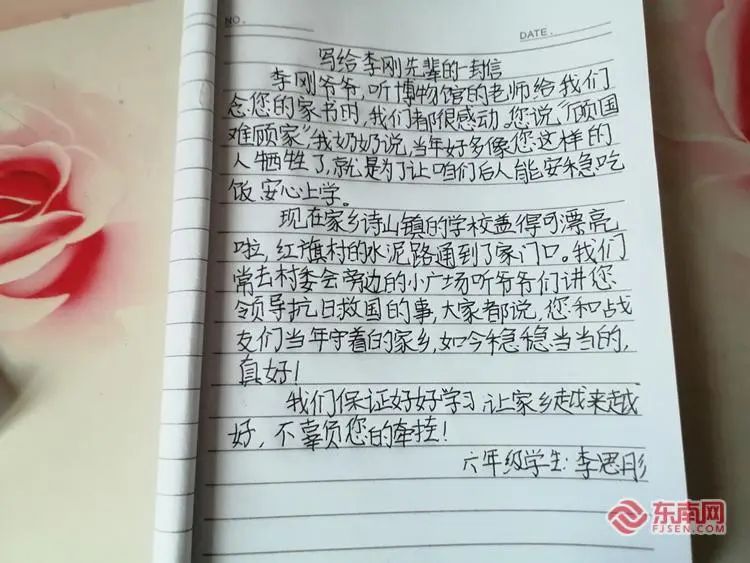 NO.
DATE.
写给李刚先辈的一封信
李刚爷爷,听博物馆的老师给我们
念您的家书时,我们都很感动。您说“顾国
难顾家”我奶奶说,当年好多像您这样的
人牺牲了,就是为了让咱们后人能安稳吃
饭、安心上学。
现在家乡诗山镇的学校盖得可漂亮
啦,红旗村的水泥路通到了家门口。我们
常去村委会旁边的小广场听爷爷们讲您
领导抗日救国的事,大家都说,您和战
友们当年守着的家乡,如今稳稳当当的,
真好!
我们保证好好学习,让家乡越来越
好,不辜负您的牵挂!
六年级学生:李思彤
东南网
FJSEN.COM